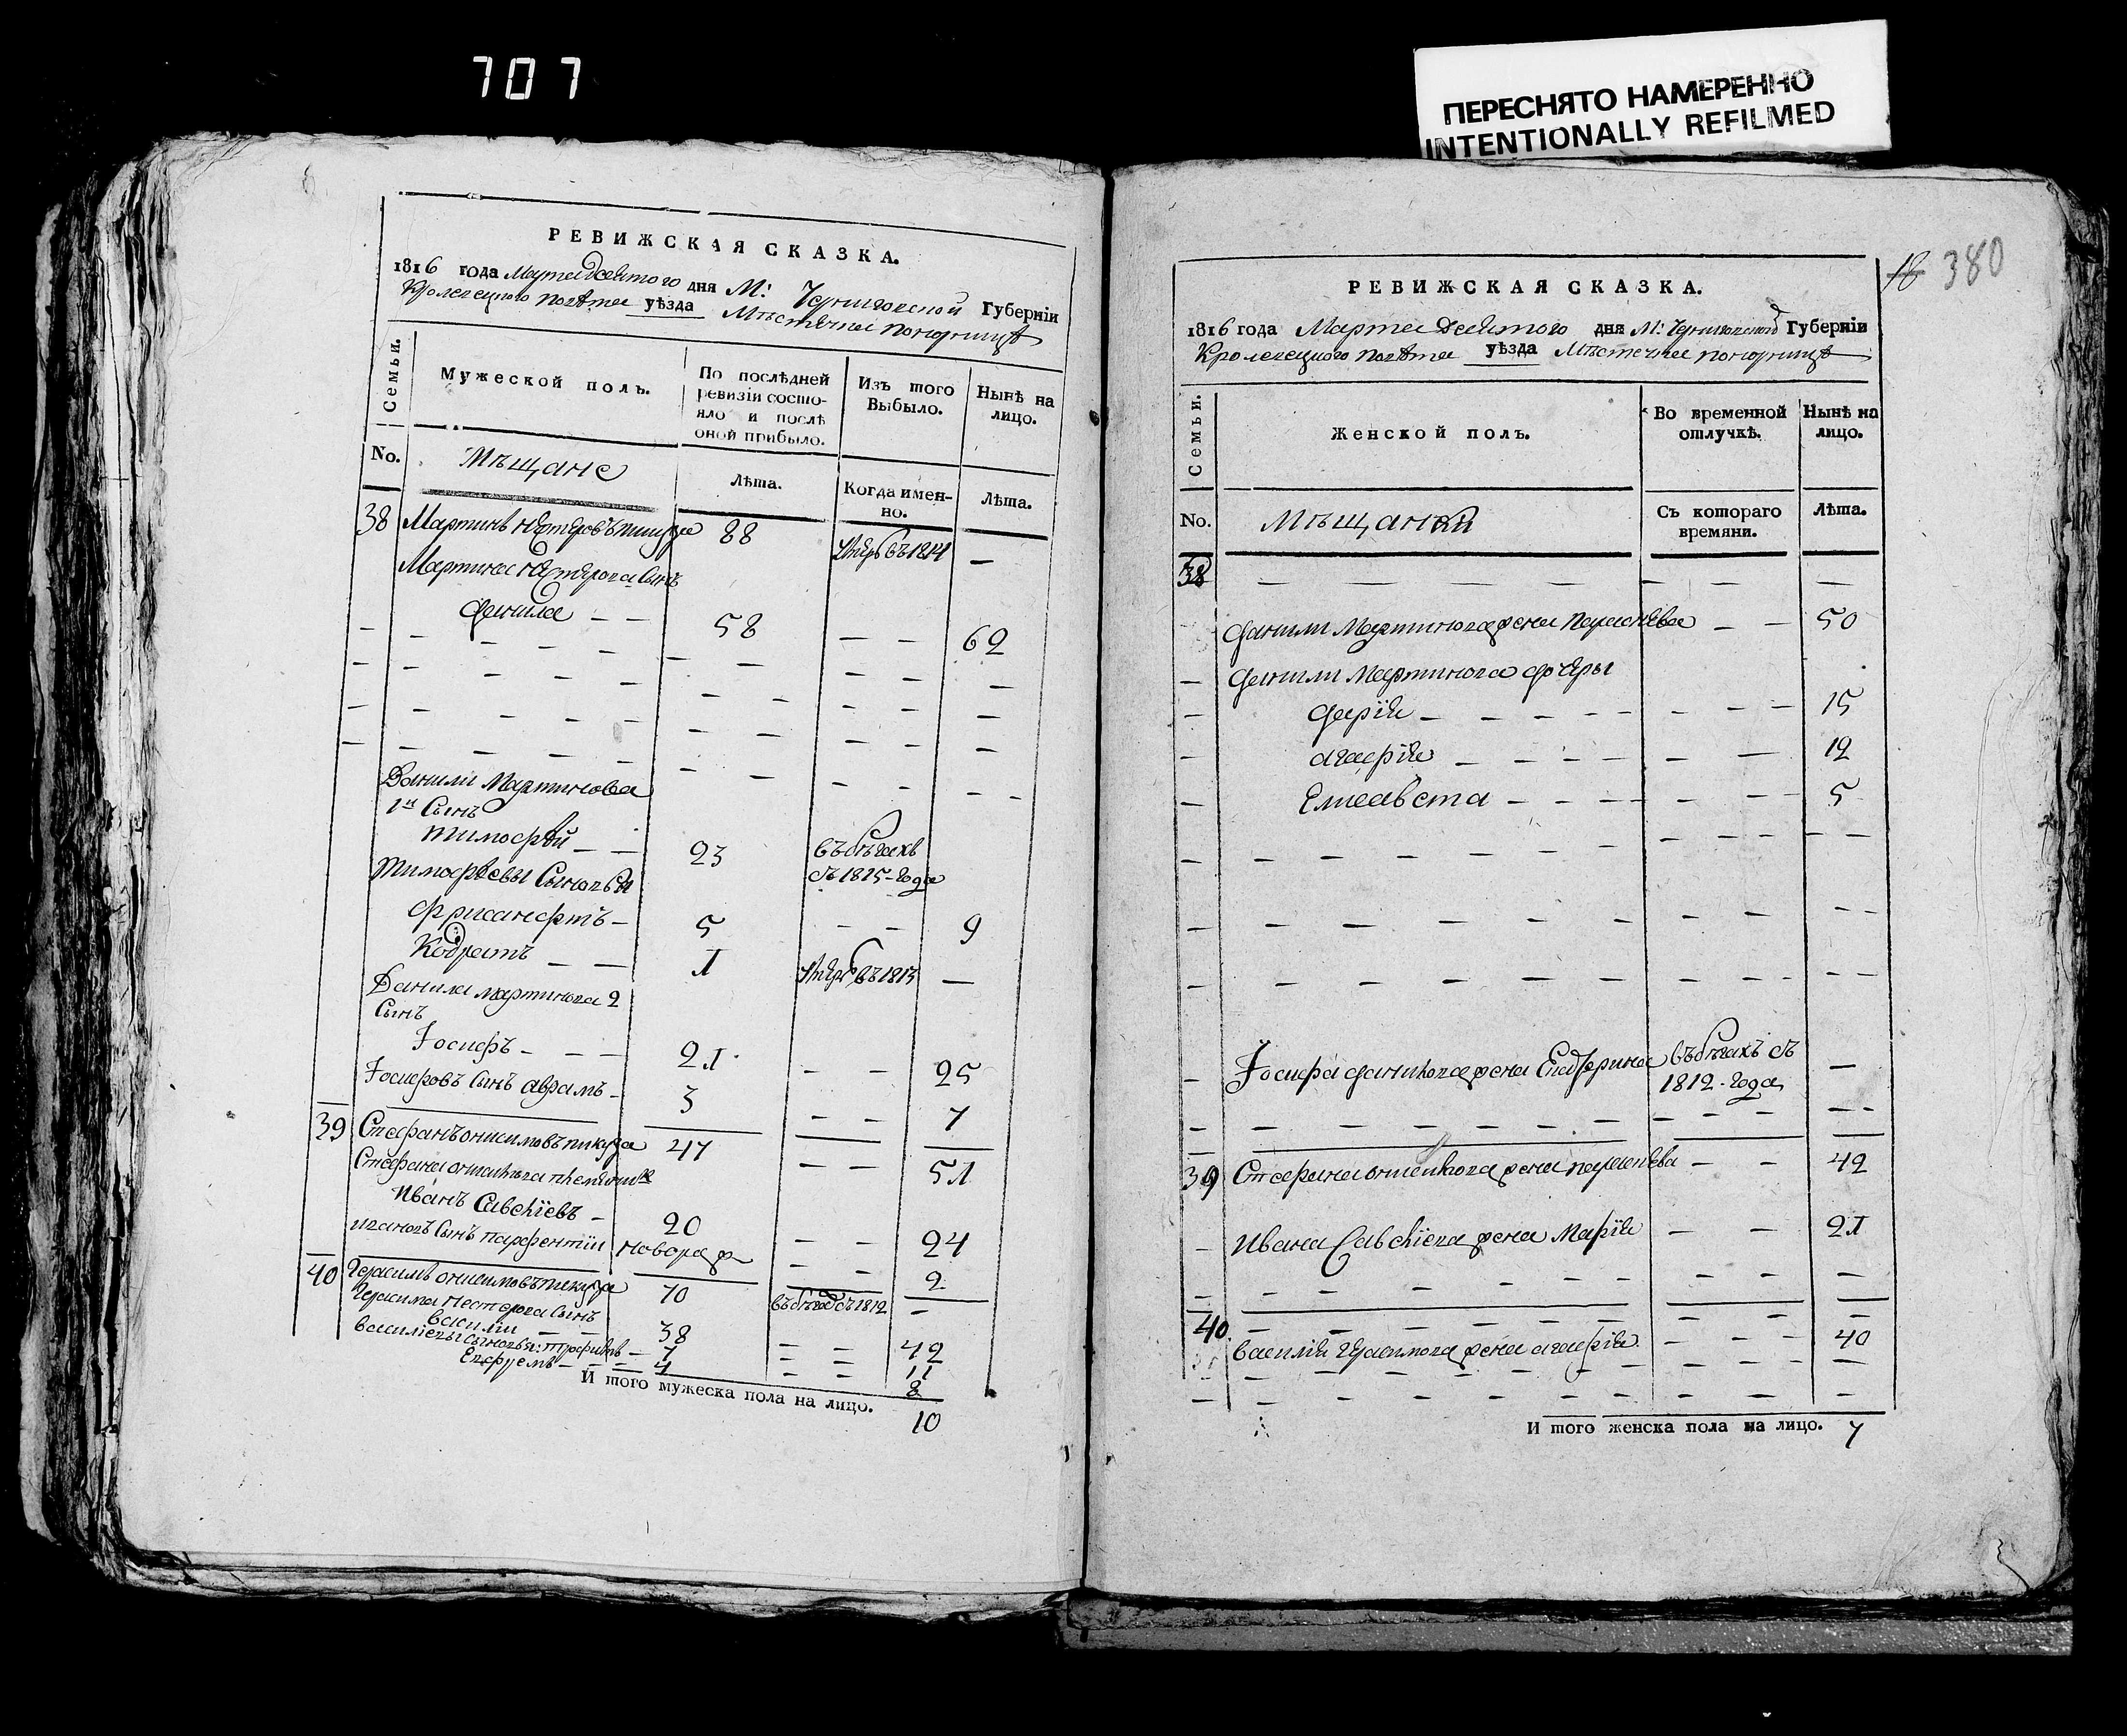 707
ПЕРЕСНЯТО НАМЕРЕННО
INTENTIONALLY REFILMED
РЕВИЖСКАЯ СКАЗКА.
1816 года Марта десятого дня М: Черниговской Губерніи
Кролевецкого повѣта уѣзда Мѣстечка Понорницѣ
Семьи.
Мужеской полъ.
По послѣдней ревизіи состояло и послѣ оной прибыло.
Изъ того Выбыло.
Нынѣ на лицо.
No.
Мѣщане
Лѣта.
Когда именно.
Лѣта.
38 Мартинъ Нестеровъ 88 въ 1814 —
Мартина Нестерова Сынъ
Данила — — 58 — — 62
Данили Мартинова
1й Сынъ
Тимофѣй — — 23 въ бѣгахъ
съ 1815 года
Тимофѣевы Сыновья
— 5 — — 9
Кодратъ — — 1 въ 1813 —
Данила Мартинова 2
Сынъ
Іосифъ — — — 21 — — 25
Іосифовъ Сынъ Аврамъ — 3 — — 7
39 Стефанъ Онисимовъ 47 — — 51
Стефана
Иванъ Савелїевъ — 20 — — 24
Ивановъ Сынъ Парфентїи новорож — — 2
40 Герасимъ Онисимовъ 70 въ съ 1812 —
Герасима Нестерова Сынъ
Василїи — — 38 — — 42
Василїевы Сыновья: Трофимъ — 7 — — 11
Ефремъ — — — 4 — — 8
И того мужеска пола на лицо. 10
18 380
РЕВИЖСКАЯ СКАЗКА.
1816 года Марта десятого дня М: Черниговской Губерніи
Кролевецкого повѣта уѣзда Мѣстечка Понорницѣ
Семьи.
Женской полъ.
Во временной отлучкѣ.
Нынѣ на лицо.
No.
Мѣщанки
Съ котораго времяни.
Лѣта.
38 — — — — — — —
Данили Мартинова жена Парасковья — — 50
Данили Мартинова дочеры
Дарїя — — — — — — — — 15
Агафїя — — — — — — 12
Елисавета — — — — — — 5
Іосифа Данилова жена Екатерина въ бѣгахъ съ
1812 года —
39 Стефана жена — — 42
Ивана Савелїева жена Марїя — — 21
40
Василїя Герасимова жена Агафїя — — — 40
И того женска пола на лицо. 7